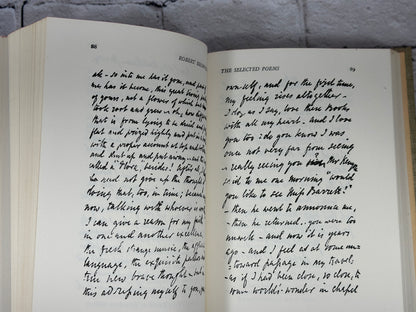 88
ROBERT BROWN
ale – so into me has it gone, and part
me has it become, this great living po
of yours, not a flower of which but
took root and grew – oh, how
that is from lying to be dried and
flat and prized highly and put in a
with a proper account at top and
and shut up and put away – and the
called a "Flora," besides! After all, I
not give up the thought of
doing that, too, in time; because
now, talking with whoever is
I can give a reason for my faith
in one and another excellence,
the fresh strange music, the affluent
language, the exquisite pathos and
true new brave thought – but in
this addressing myself to you, your
THE SELECTED POEMS
89
own self, and for the first time,
my feeling rises altogether.
I do, as I say, love these Books
with all my heart – and I love
you too: do you know I was
once not very far from seeing
– really seeing you? Mr. Kenyon
said to me one morning "would
you like to see Miss Barrett?"
– then he went to announce me,
– then he returned.. you were too
unwell – and now it is years
ago – and I feel as at some un-
toward passage in my travels –
as if I had been close, so close, to
some world's-wonder in chapel